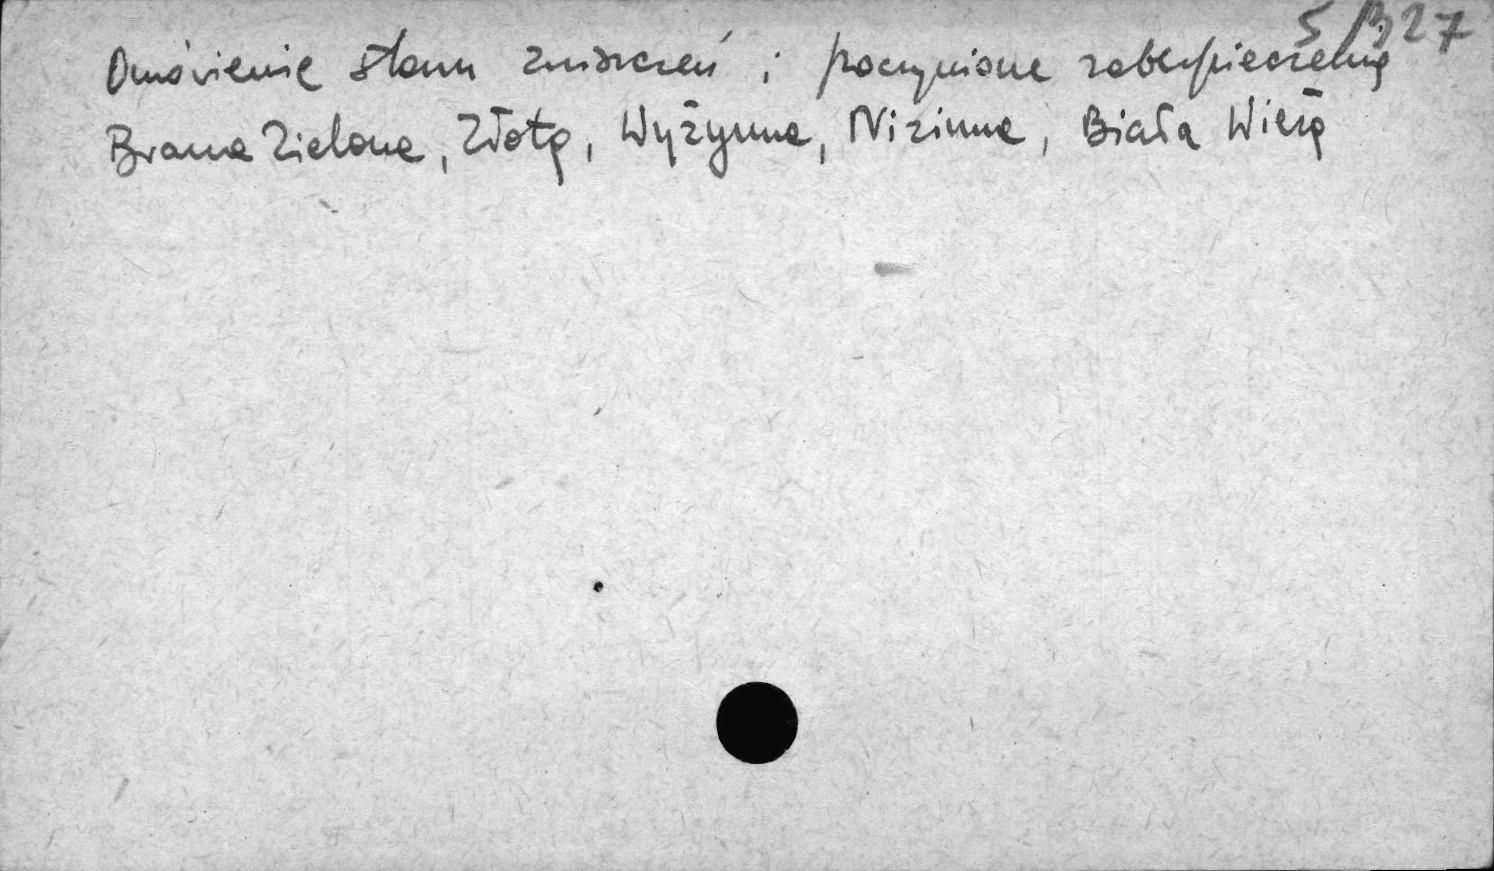 5 B 27
Omówienie stanu zniszczeń i poczynione zabezpieczenia
Brama Zielona, Złota, Wyżynna, Nizinna, Biała Wieża